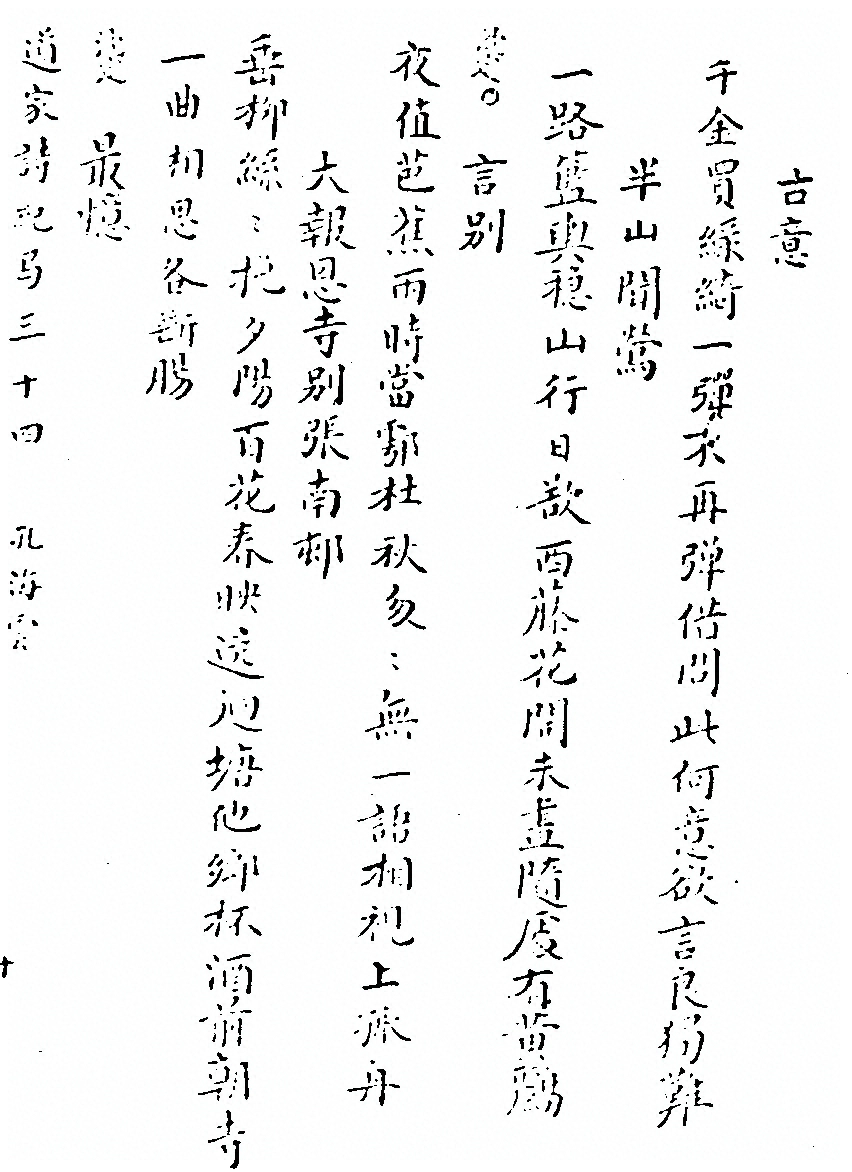 古意
千金買綠綺一彈不再彈借問此何意欲言良獨難
半山聞鶯
一路籃輿穩山行日欲西藤花開未盡隨處有黃鸝
言別
夜值芭蕉雨時當鄠杜秋匆〻無一語相視上孤舟
大報恩寺別張南邨
垂柳絲〻挽夕陽百花春映迴塘他鄉杯酒前朝寺
一曲相思各斷腸
最憶
道家詩紀 三十四 孔海雲
十